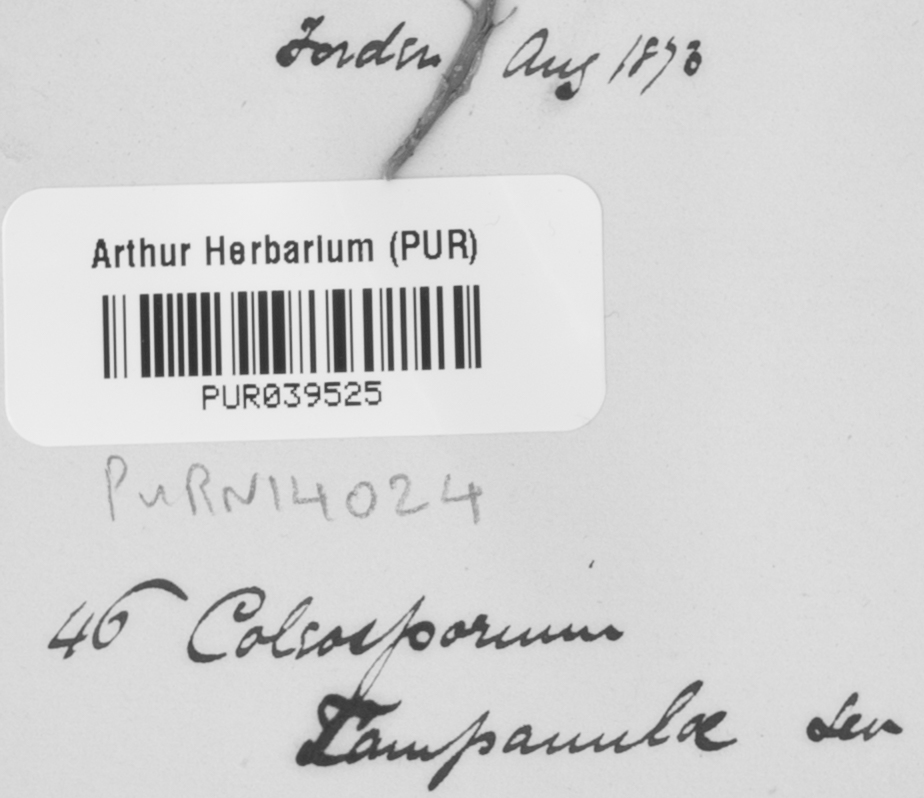 Forden Aug 1873
Arthur Herbarium (PUR)
PUR039525
PURN14024
46 Coleosporium
Campanulæ Lev